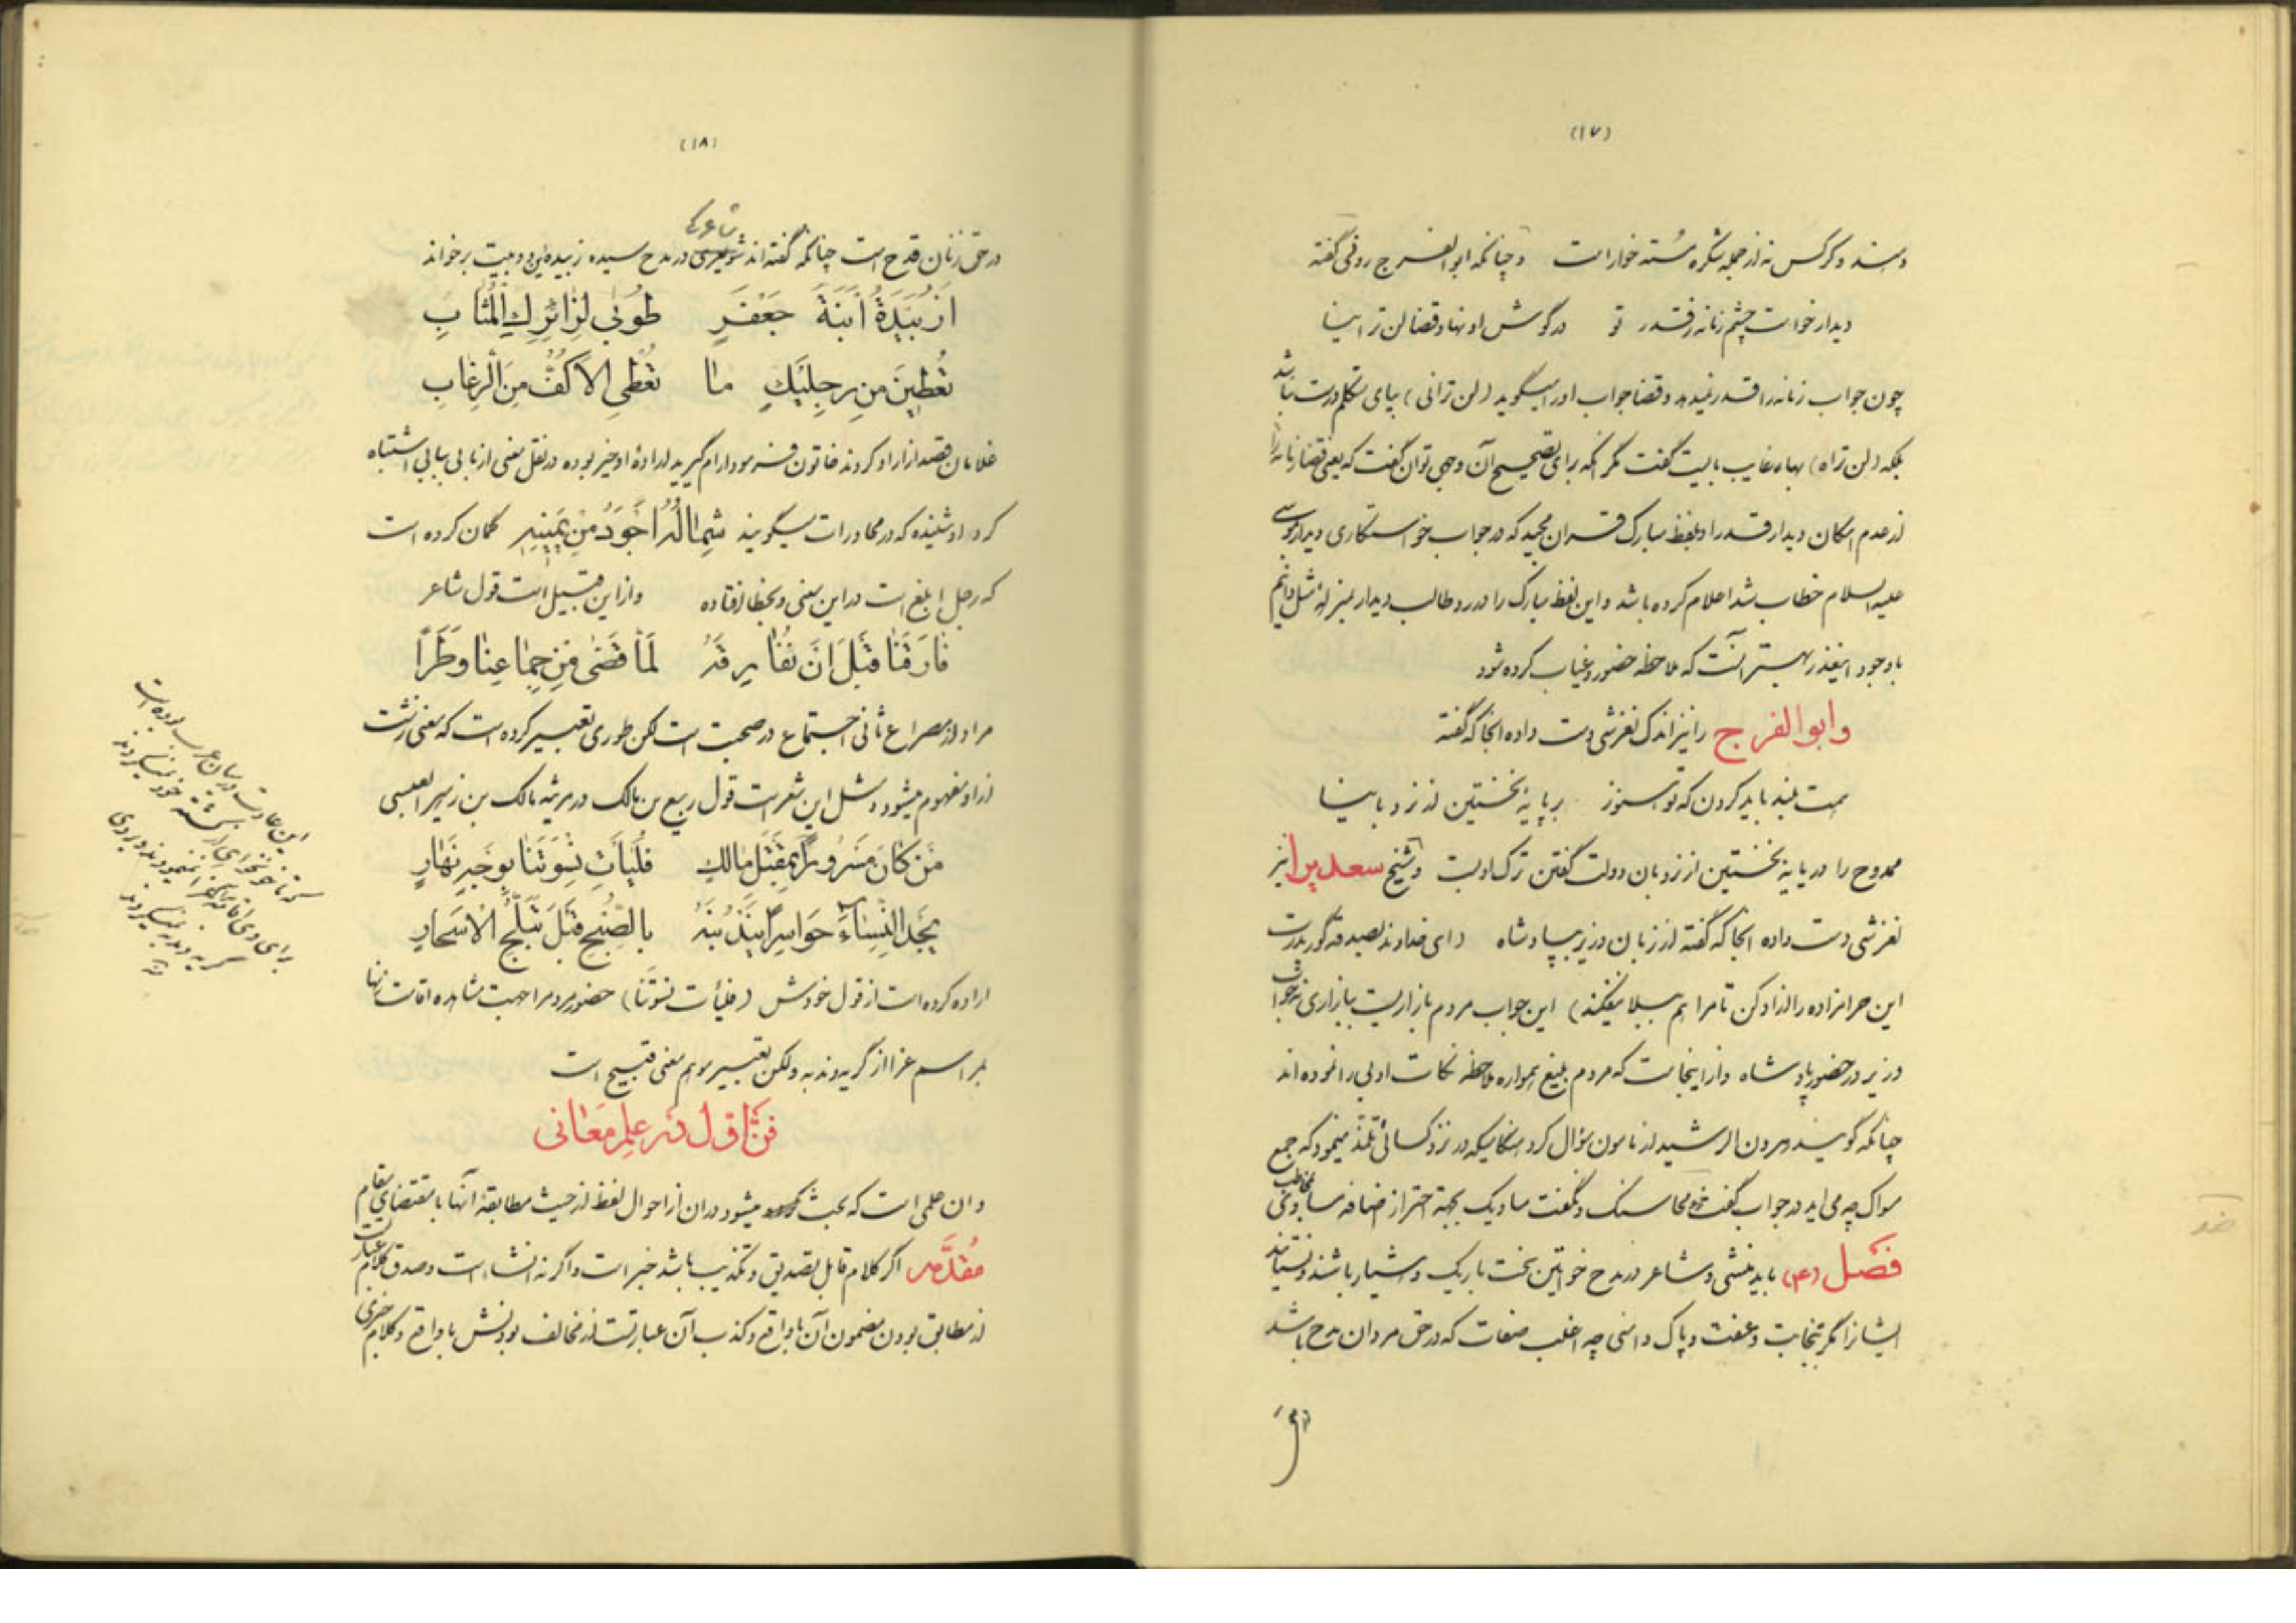 (۱۷)
و کرکس نه از جمله شکره مُسته خوار است و چنانکه ابوالفرج رونی گفته
دیدار خواست چشم زمانه ز قدر تو در گوش او نهاد قضا لن ترانیا
چون جواب زمانه را قدر نمیدهد و قضا جواب او را میگوید (لن ترانی) بیای تکلم درست نباشد
بلکه (لن تراه) بهاء غایب بایست گفت مگر آنکه برای تصحیح آن وجهی توان گفت که یعنی قضا زمانه را
از عدم امکان دیدار قدر او بلفظ مبارک قرآن مجید که در جواب خواستکاری دیدار موسی
علیه السلام خطاب شد اعلام کرده باشد و این لفظ مبارک را در رد طالب دیدار بمنزله مثل دانیم
با وجود اینقدر بهتر آنست که ملاحظه حضور و غیاب کرده شود
وابوالفرج را نیز اندک لغزشی دست داده آنجا که گفته
همت بلند باید کردن که تو هنوز بر پایهٔ نخستین از نردبانیا
ممدوح را در پایهٔ نخستین از نردبان دولت گفتن ترک ادبست و شیخ سعدی را نیز
لغزشی دست داده آنجا که گفته از زبان وزیر بپادشاه (ای خداوند بصدقه گور پدرت
این حرامزاده را آزاد کن تا مرا هم ببلا نیفکند) این جواب مردم بازاریست ببازاری نه جواب
وزیر در حضور پادشاه و از اینجاست که مردم بلیغ همواره ملاحظه نکات ادبی را نموده اند
چنانکه گویند هرون الرشید از مامون سؤال کرد هنگامیکه در نزد کسائی تلمذ مینمود که جمع
مسواک چه می آید در جواب گفت ضد محاسنک و نگفت مساویک بجهة احتراز از اضافه مساوی بمخاطب
فصل (۴) باید منشی و شاعر در مدح خواتین سخت باریک و هشیار باشند و نستایند
ایشانرا مگر بنجابت و عفت و پاک دامنی چه اغلب صفات که در حق مردان مدح باشد
(۱۸)
شاعری
در حق زنان قدح است چنانکه گفته اند در مدح سیده زبیده این دو بیت برخواند
اَزُبَیْدَةُ اَبْنَةَ جَعْفَرٍ طُوبٰی لِزٰائِرِكِ الْمُثٰابِ
تُعْطِینَ مِن رِجِلَیْكِ مٰا تُعْطِی الْاَکُفُّ مِنَ الْرِغٰابِ
غلامان قصد آزار او کردند خاتون فرمود آرام گیرید اراده او خیر بوده در نقل معنی از بابی ببابی اشتباه
کرد او شنیده که در محاورات میگویند شِمٰالُهُ اَجْوَدُ مِنْ یَمینِهِ گمان کرده است
که رجل ابلغ است در این معنی و بخطا افتاده و از این قبیل است قول شاعر
فٰارَقَنٰا قَبْلَ اَنْ نُفٰارِقَهُ لَمّٰا قَضٰی مِن جِمٰاعِنٰا وَطَرًا
مراد از مصراع ثانی اجتماع در صحبت است لکن طوری تعبیر کرده است که معنی زشت
از او مفهوم میشود و مثل این شعر است قول ربیع بن مالک در مرثیه مالک بن زهیر العبسی
مَنْ کٰانَ مَسْرُورًا بِمَقْتَلِ مٰالِكٍ فَلْیَأتِ نِسْوَتَنٰا بِوَجْهِ نَهٰارٍ
یَجِدِ النِّسٰاءَ حَوٰاسِرًا یَنْدُبْنَهُ بِالصُّبْحِ قَبْلَ تَبَلُّجِ الْاَسْحٰارِ
اراده کرده است از قول خودش (فلیأت نسوتنا) حضور مردم را جهت مشاهده اقامت زنها
بمراسم عزا از گریه و ندبه ولکن تعبیر موهم معنی قبیح است
فنّ اوّل در علم معانی
و ان علمی است که بحث میشود در ان از احوال لفظ از حیث مطابقهٔ آنها با مقتضای مقام
مقدّمه اگر کلام قابل تصدیق و تکذیب باشد خبر است و اگر نه انشاء است و صدق کلام عبارتست
از مطابق بودن مضمون آن با واقع و کذب آن عبارتست از مخالف بودنش با واقع و کلام خبری
این عادت در میان عرب بوده است
که تا خونخواهی از کشته خود نمینمودند